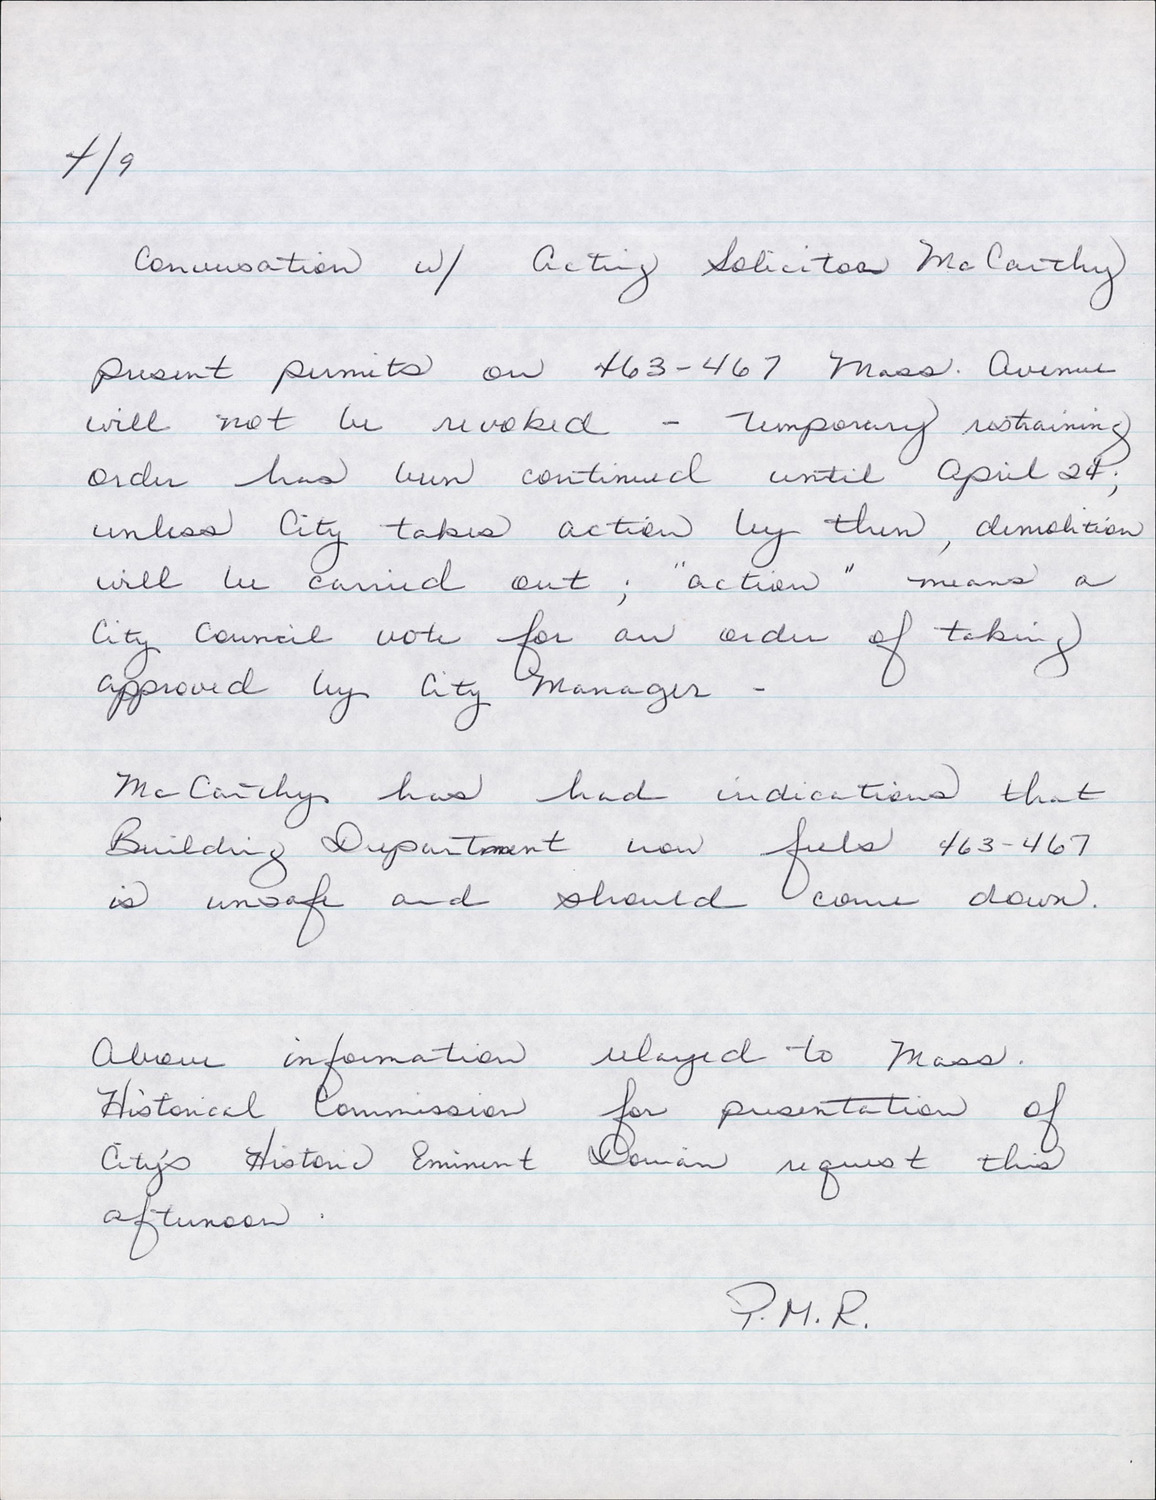 4/9
Conversation w/ Acting Solicitor McCarthy
present permits on 463-467 Mass. Avenue
will not be revoked - temporary restraining
order has been continued until April 24;
unless City takes action by then, demolition
will be carried out; "action" means a
City Council vote for an order of taking
approved by City Manager -
McCarthy has had indications that
Building Department now feels 463-467
is unsafe and should come down.
Above information relayed to Mass.
Historical Commission for presentation of
City's Historic Eminent Domain request this
afternoon.
P.M.R.